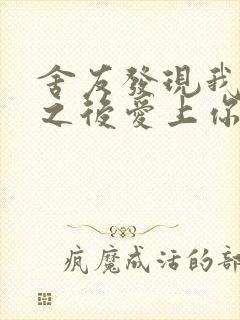 舍友發現我
之後愛上你
疯魔成活的部